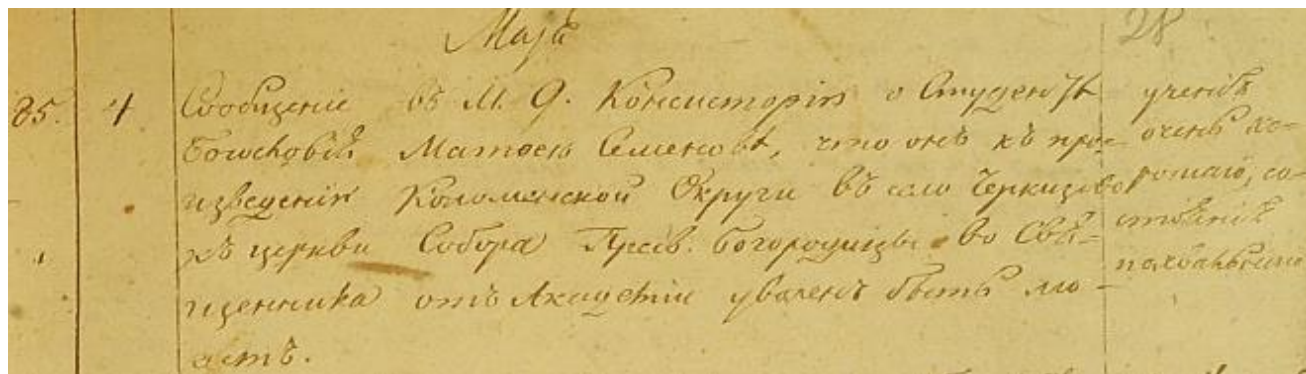 Маія
28
85. 4 Сообщеніе въ М. Д. Консисторію о Студентѣ
Богословіи Матвеѣ Семеновѣ, что онъ къ про-
изведенію Коломенской Округи въ село Черкизово
къ церкви Собора Пресв. Богородицы во Свя-
щенника отъ Академіи уволенъ быть мо-
жетъ.
ученія
очень хо-
рошаго, со-
стоянія
похвальнаго